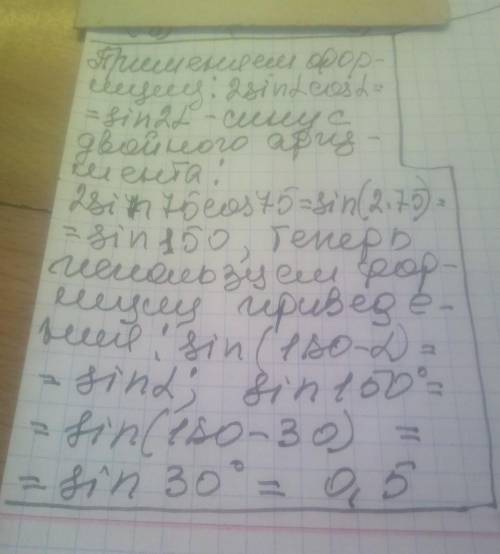 Применяем фор-
мулу: 2sinαcosα=
=sin2α - синус
двойного аргу-
мента:
2sin75cos75=sin(2·75)=
=sin150, теперь
используем фор-
мулу приведе-
ния: sin(180-α)=
=sinα; sin150°=
=sin(180-30) =
=sin30° = 0,5